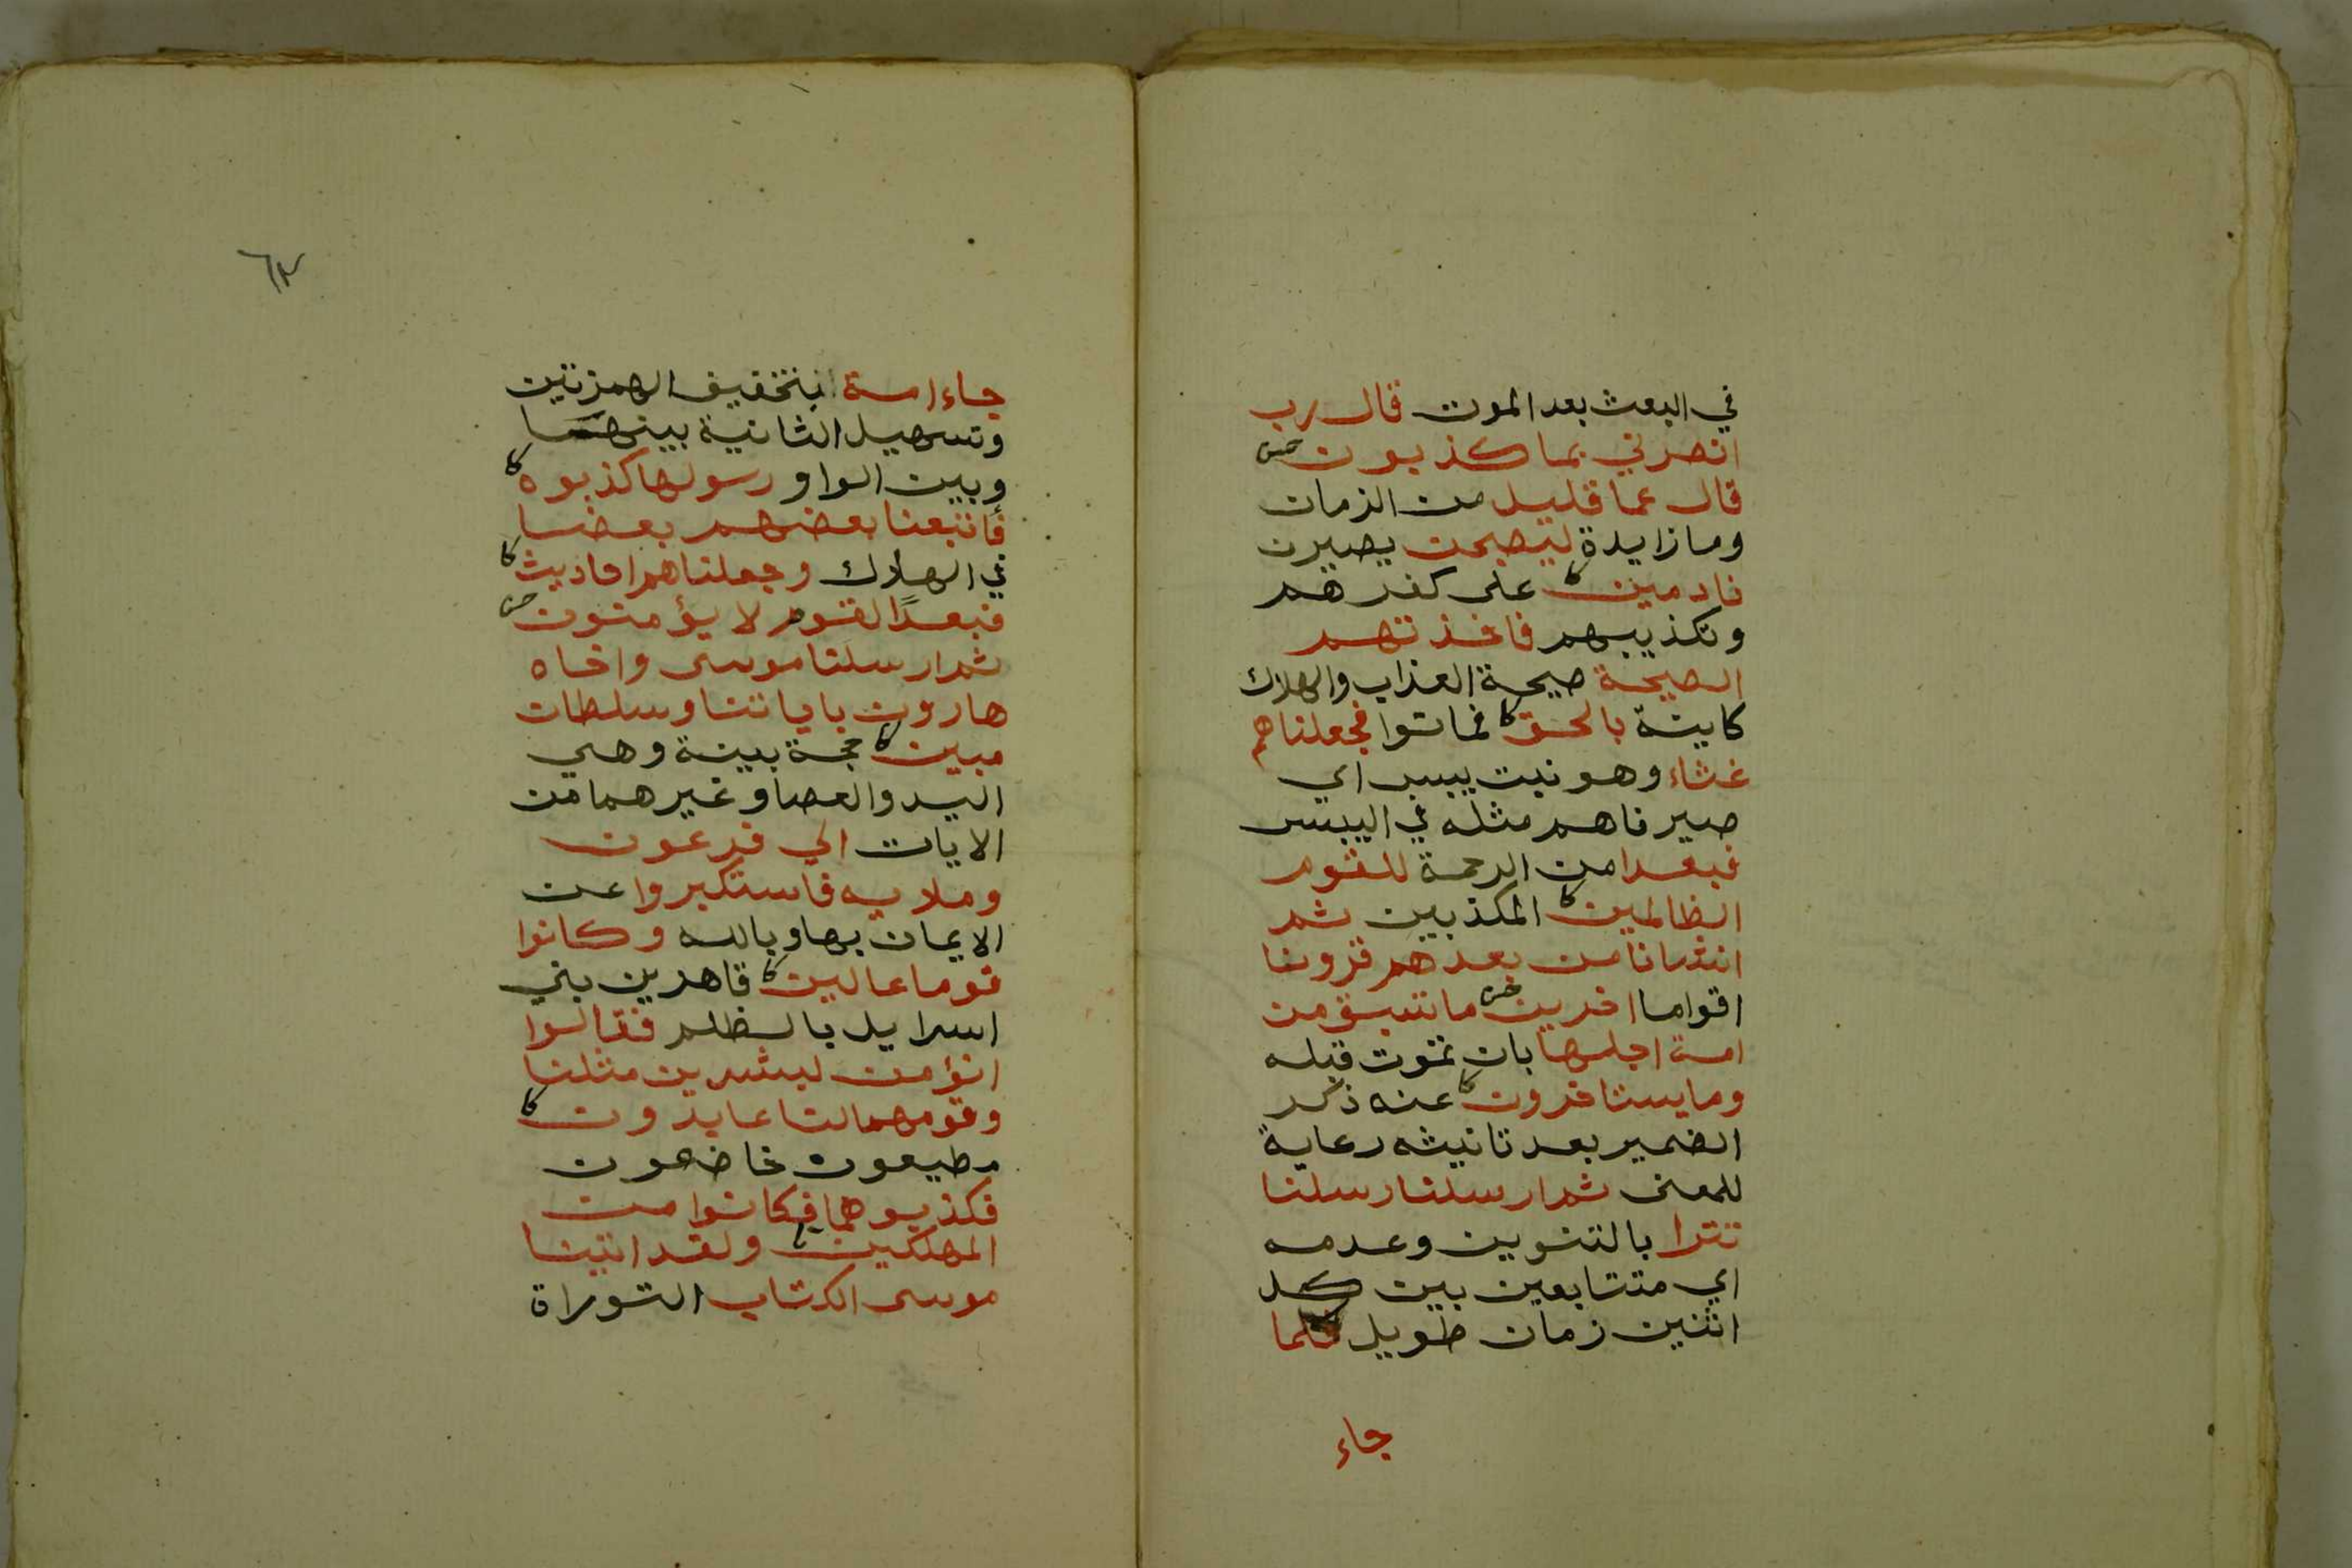 في البعث بعد الموت قال رب
انصرني بما كذبون
قال عما قليل من الزمان
وما زايدة ليصبحن يصيرن
نادمين على كفرهم
وتكذيبهم فاخذتهم
الصيحة صيحة العذاب والهلاك
كاينة بالحق فماتوا فجعلناهم
غثاء وهو نبت يبس اي
صيرناهم مثله في اليبس
فبعدا من الرحمة للقوم
الظالمين المكذبين ثم
انشانا من بعدهم قرونا
اقواما اخرين ما تسبق من
امة اجلها بان تموت قبله
وما يستاخرون عنه ذكر
الضمير بعد تانيثه رعاية
للمعنى ثم ارسلنا رسلنا
تترا بالتنوين وعدمه
اي متتابعين بين كل
اثنين زمان طويل كلما
جاء
جاء امة بتخفيف الهمزتين
وتسهيل الثانية بينهما
وبين الواو رسولها كذبوه
فأتبعنا بعضهم بعضا
في الهلاك وجعلناهم احاديث
فبعدًا لقوم لا يؤمنون
ثم ارسلنا موسى واخاه
هارون باياتنا وسلطان
مبين حجة بينة وهي
اليد والعصا وغيرهما من
الايات الي فرعون
وملايه فاستكبروا عن
الايمان بها وبالله وكانوا
قوما عالين قاهرين بني
اسرايل بالظلم فقالوا
انؤمن لبشرين مثلنا
وقومهما لنا عابدون
مطيعون خاضعون
فكذبوهما فكانوا من
المهلكين ولقد اتينا
موسى الكتاب التوراة